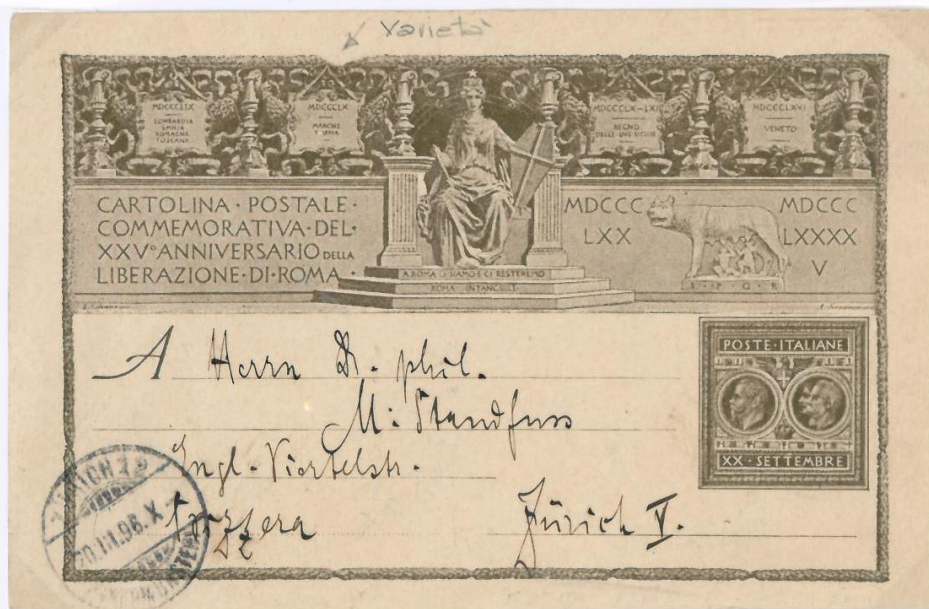 Varietà
MDCCCLIX
LOMBARDIA
EMILIA
ROMAGNE
TOSCANA
MDCCCLX
MARCHE
UMBRIA
MDCCCLX-LXI
REGNO
DELLE DUE SICILIE
MDCCCLXVI
VENETO
CARTOLINA · POSTALE ·
COMMEMORATIVA · DEL ·
XXV° ANNIVERSARIO DELLA
LIBERAZIONE · DI · ROMA ·
A ROMA CI SIAMO E CI RESTEREMO
ROMA INTANGIBILE
MDCCC
LXX
MDCCC
LXXXX
V
S · P · Q · R
POSTE · ITALIANE
XX · SETTEMBRE
A Herrn Dr. phil.
M. Standfuss
Engl. Viertelstr.
Svizzera Zürich V.
96. X